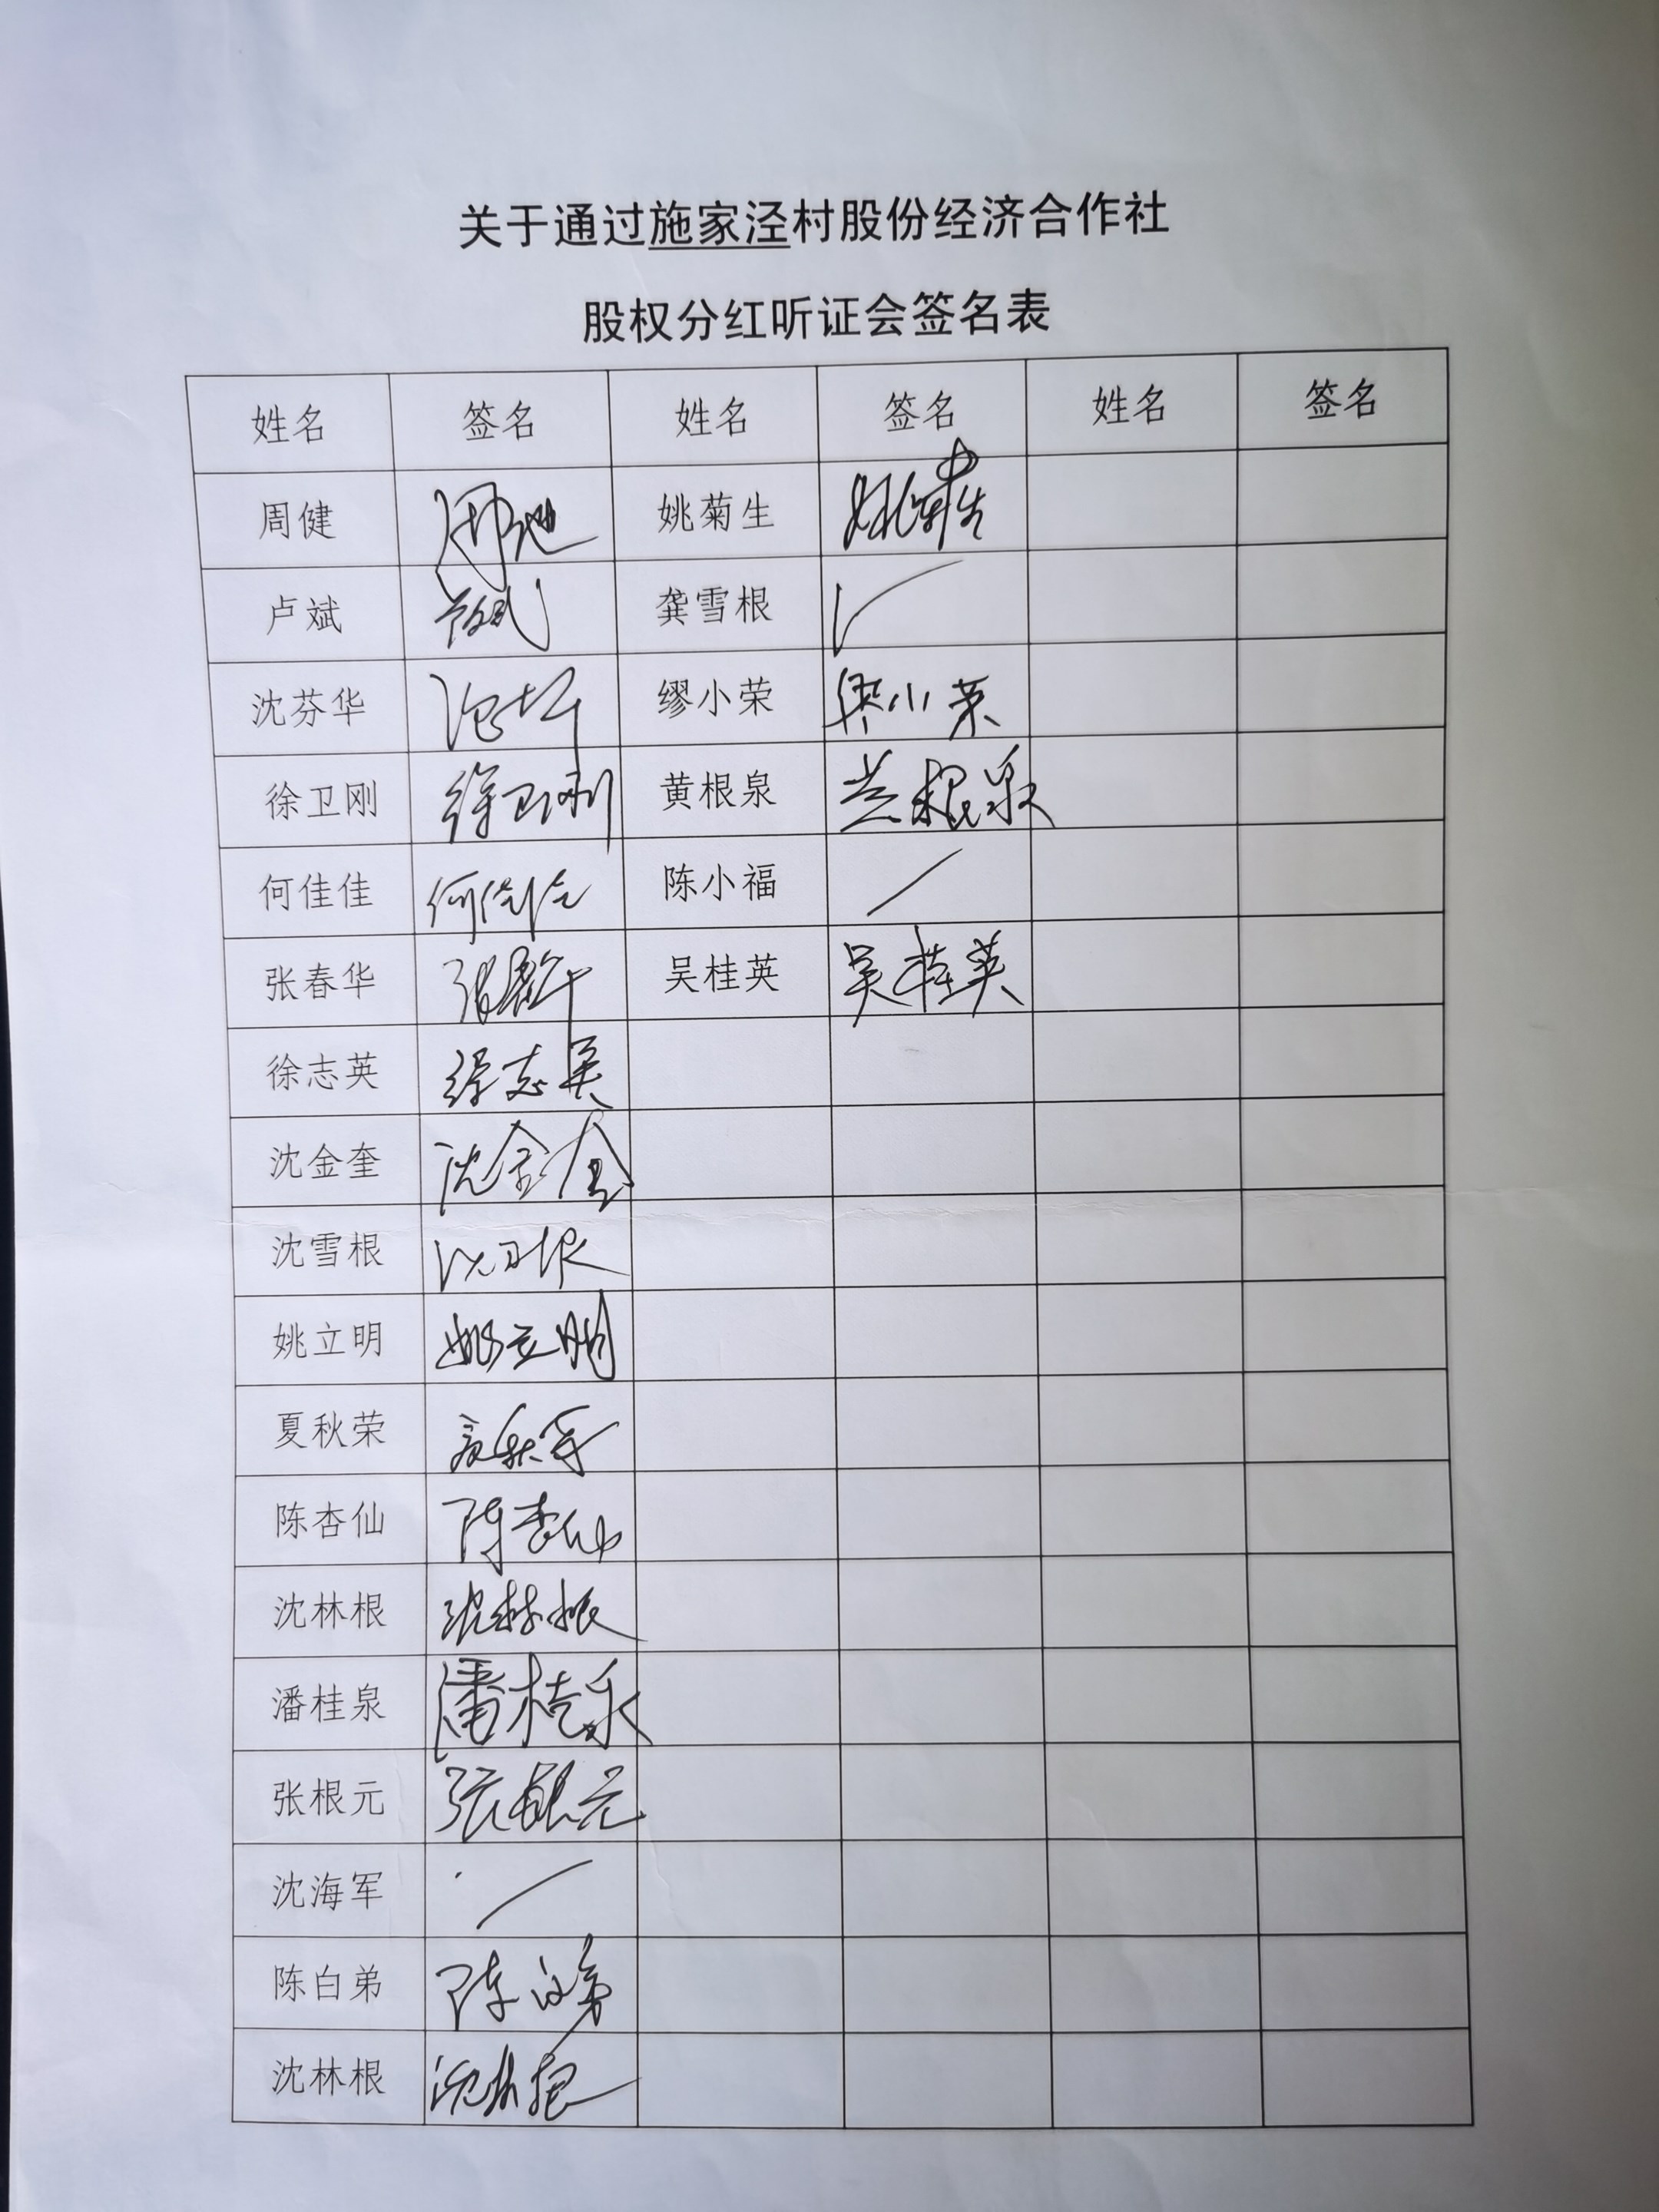 关于通过施家泾村股份经济合作社
股权分红听证会签名表
姓名 签名 姓名 签名 姓名 签名
周健 周健 姚菊生 姚菊生
卢斌 卢斌 龚雪根
沈芬华 缪小荣 缪小荣
徐卫刚 徐卫刚 黄根泉 黄根泉
何佳佳 何佳佳 陈小福
张春华 张春华 吴桂英 吴桂英
徐志英 徐志英
沈金奎 沈金奎
沈雪根
姚立明 姚立明
夏秋荣 夏秋荣
陈杏仙 陈杏仙
沈林根 沈林根
潘桂泉 潘桂泉
张根元 张根元
沈海军
陈白弟 陈白弟
沈林根 沈林根